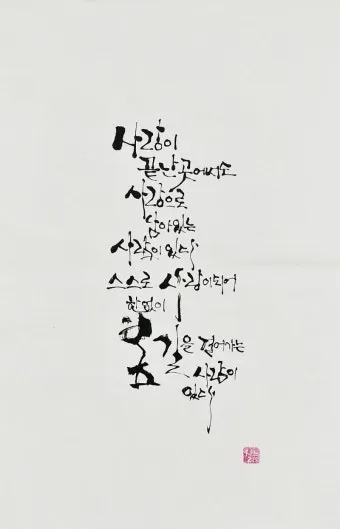 사랑이
끝난 곳에서도
사랑으로
남아있는
사람이 있다
스스로 사랑이 되어
한없이
봄 길을 걸어가는
사람이
있다